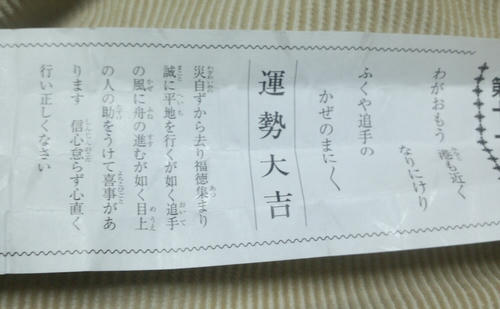 第
わがおもう
港も近く
なりにけり
ふくや追手の
かぜのまに〱
運勢大吉
災自ずから去り福徳集まり
誠に平地を行くが如く追手
の風に舟の進むが如く目上
の人の助をうけて喜事があ
ります 信心怠らず心直く
行い正しくなさい